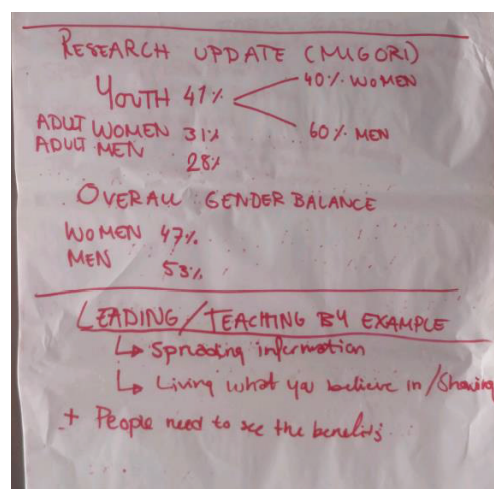 RESEARCH UPDATE (MIGORI)
YOUTH 41% 40% WOMEN
60% MEN
ADUT WOMEN 31%
ADULT MEN 28%
OVERALL GENDER BALANCE
WOMEN 47%
MEN 53%
LEADING/TEACHING BY EXAMPLE
↳ Spreading information
↳ Living what you believe in/Sharing
+ People need to see the benefits